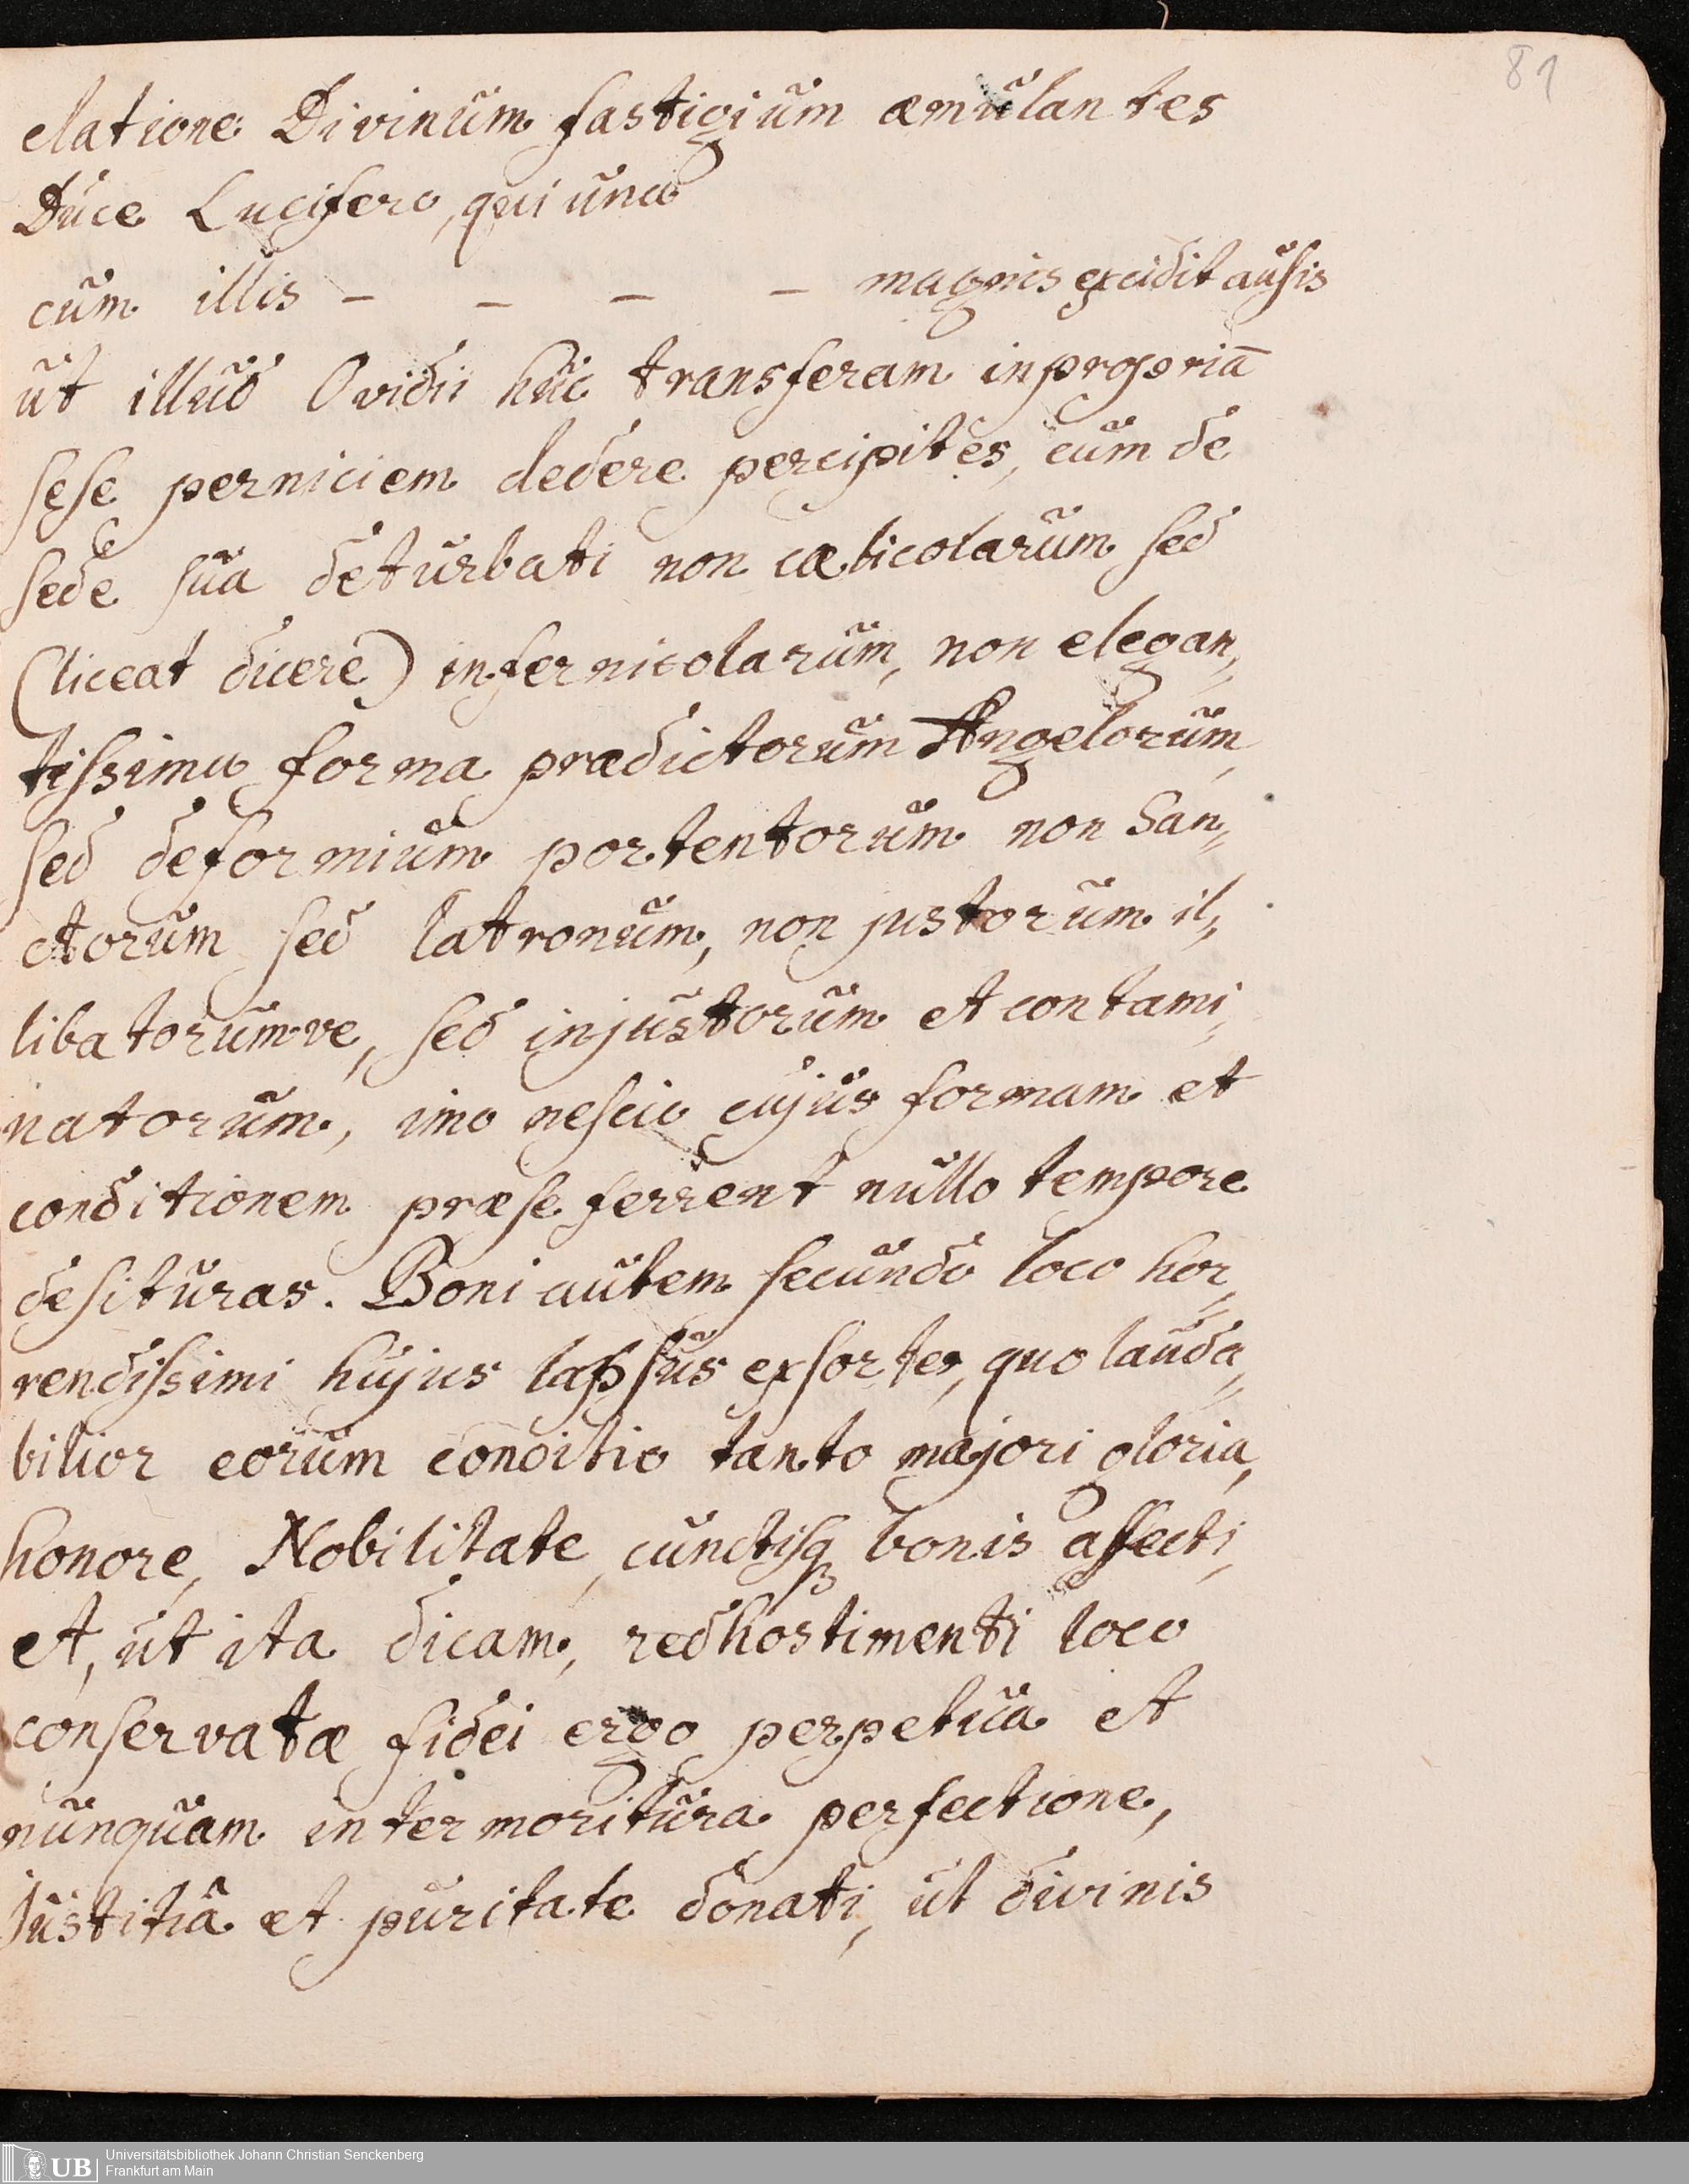 81
elatione Divinum fastigium æmulantes
Duce Lucifero, qui una
cum illis – – – – magnis excidit ausis
ut illud Ovidii huc transferam in propriā
sese perniciem dedere percipites, cum de
sede sua deturbati non cælicolarum sed
(liceat dicere) infernicolarum, non elegan„
tissima forma prædictorum Angelorum,
sed deformium portentorum non San„
ctorum sed latronum, non justorum il„
libatorumve, sed injustorum et contami„
natorum, imo nescio cujus formam et
conditionem præse ferrent nullo tempore
desituras. Boni autem secundo loco hor„
rendissimi hujus lapsus exsortes, quo lauda„
bilior eorum conditio tanto majori gloria,
honore, Nobilitate, cunctisq; bonis affecti,
et, ut ita dicam, redhostimenti loco
conservatæ fidei ergo perpetua et
nunquam intermoritura perfectione,
Justitiâ et puritate donati, ut divinis
UB
Universitätsbibliothek Johann Christian Senckenberg
Frankfurt am Main